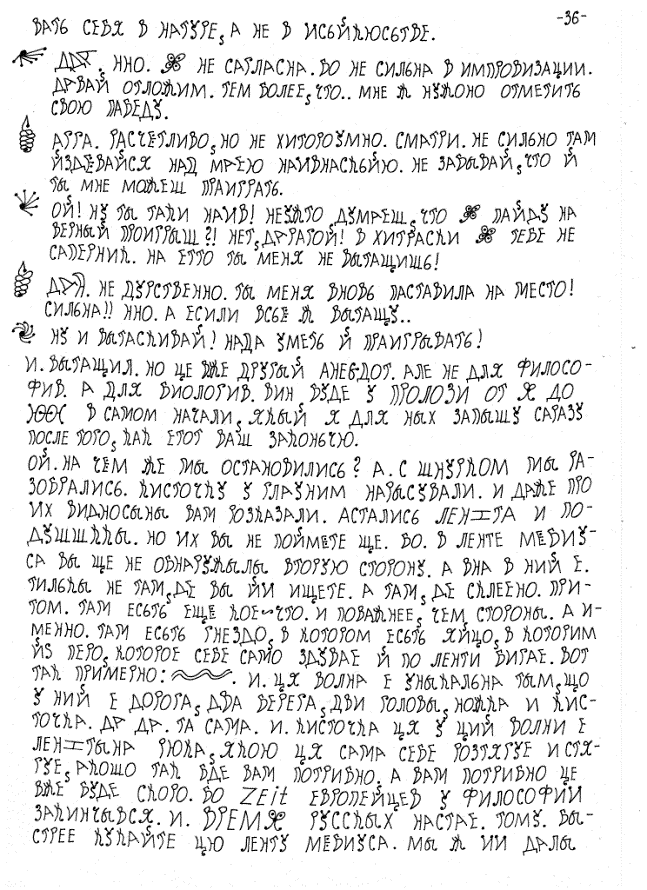 -36-
ВАТЬ СЕБЯ В НАТУРЕ, А НЕ В ИСЬЙКЮСЬТВЕ.
ДДТ. ННО. НЕ САГЛАСНА. БО НЕ СИЛЬНА В ИМПРОВИЗАЦИИ.
ДАВАЙ ОТЛОЖИМ. ТЕМ БОЛЕЕ, ЧТО.. МНЕ Ж НУЖОНО ОТМЕТИТЬ
СВОЮ ПАБЕДУ.
АГГА. РАСЧЁТЛИВО, НО НЕ ХИТОРОУМНО. СМАТРИ. НЕ СИЛЬНО ТАМ
ЙЗДЕВАЙСЯ НАД МАЕЮ НАИВНАСЬКЬЙЮ. НЕ ЗАБЫВАЙ, ЧТО Й
ТЫ МНЕ МОЖЕШ ПРАИГРАТЬ.
ОЙ! НУ ТЫ ТАКИ НАИВ! НЕУЖТО ДУМАЕШ, ЧТО ПАЙДУ НА
ВЕРНЫЙ ПРОИГРЫШ?! НЕТ, ДАРАГОЙ! В ХИТРАСЬТИ ТЕБЕ НЕ
САПЕРНИК. НА ЕТТО ТЫ МЕНЯ НЕ ВЫТАЩИШЬ!
НЕ ДУРСТВЕННО. ТЫ МЕНЯ ВНОВЬ ПАСТАВИЛА НА МЕСТО!
СИЛЬНА!! ННО. А ЕСИЛИ ВСЬЁ Ж ВЫТАЩУ..
НУ И ВЫТАСКИВАЙ! НАДА УМЕТЬ Й ПРАИГРЫВАТЬ!
И. ВЫТАЩИЛ. НО ЦЕ ВЖЕ ДРУГЫЙ АНЕБДОТ. АЛЕ НЕ ДЛЯ ФИЛОСО-
ФИВ. А ДЛЯ БИОЛОГИВ. ВИН, БУДЕ У ПРОЛОЗИ ОТ Я ДО
В САМОМ НАЧАЛИ, ЯКЫЙ Я ДЛЯ НЫХ ЗАПЫШУ САРАЗУ
ПОСЛЕ ТОГО, КАК ЕТОТ ВАШ ЗАКОНЬЧЮ.
ОЙ. НА ЧЁМ ЖЕ МЫ ОСТАНОВИЛИСЬ? А. С ШНУРКОМ МЫ РА-
ЗОБРАЛИСЬ. КИСТОЧКУ У ГЛАУНИМ НАРЫСУВАЛИ. И ДАЖЕ ПРО
ИХ ВИДНОСЫНЫ ВАМ РОЗКАЗАЛИ. АСТАЛИСЬ ЛЕНТА И ПО-
ДУШШКЫ. НО ИХ ВЫ НЕ ПОЙМЕТЕ ЩЕ. БО. В ЛЕНТЕ МЕБИУ-
СА ВЫ ЩЕ НЕ ОБНАРУЖЫЛЫ ВТОРУЮ СТОРОНУ. А ВНА В НИЙ Е.
ТИЛЬКЫ НЕ ТАМ, ДЕ ВЫ ЙИ ИЩЕТЕ. А ТАМ, ДЕ СКЛЕЕНО. ПРИ-
ТОМ. ТАМ ЕСЬТЬ ЕЩЁ КОЕ~ЧТО. И ПОВАЖНЕЕ, ЧЕМ СТОРОНЫ. А И-
МЕННО. ТАМ ЕСЬТЬ ГНЕЗДО, В КОТОРОМ ЕСЬТЬ ЯЙЦО, В КОТОРИМ
ЙЗ ПЕРО, КОТОРОЕ СЕБЕ САМО ЗДУВАЕ Й ПО ЛЕНТИ ВИГАЕ. ВОТ
ТАК ПРИМЕРНО: . И. ЦЯ ВОЛНА Е УНЫКАЛЬНА ТЫМ, ЩО
У НИЙ Е ДОРОГА, ДВА БЕРЕГА, ДВИ ГОЛОВЫ, НОЖКА И КИС-
ТОЧКА. ДА ДА. ТА САМА. И. КИСТОЧКА ЦЯ У ЦИЙ ВОЛНИ Е
ЛЕНТЫНА РЮКА, ЯКОЮ ЦЯ САМА СЕБЕ РОЗТЯГУЕ И СТЯ-
ГУЕ, АКОЩО ТАК ВДЕ ВАМ ПОТРИБНО. А ВАМ ПОТРИБНО ЦЕ
ВЖЕ БУДЕ СКОРО. БО ZEit ЕВРОПЕЙЦЕВ У ФИЛОСОФИИ
ЗАКИНЧЫВСЯ. И. ВРЕМЯ РУССКЫХ НАСТАЕ. ТОМУ. БЫ-
СТРЕЕ КУКАЙТЕ ЦЮ ЛЕНТУ МЕБИУСА. МЫ Ж ИИ ДАЛЫ